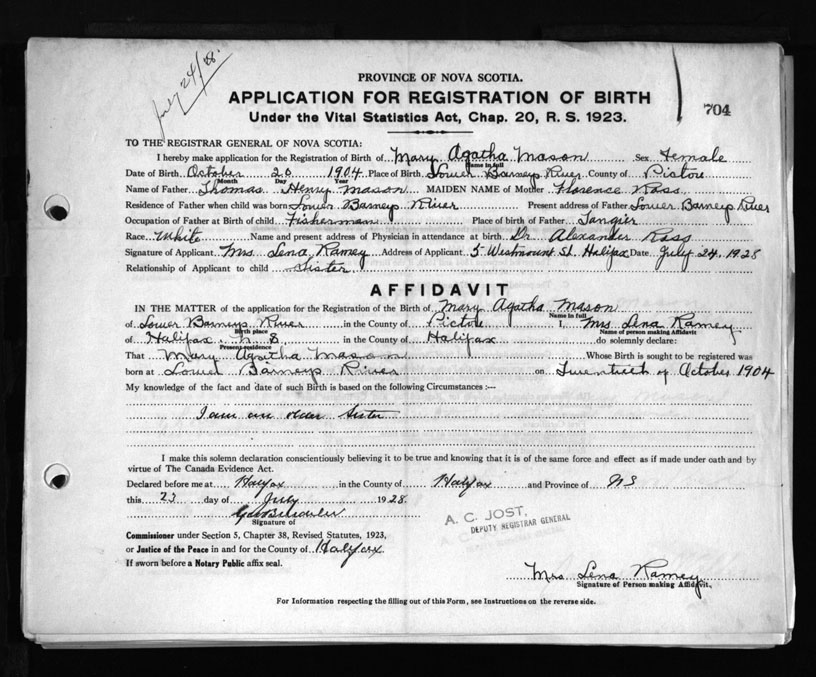 July 24/28.
PROVINCE OF NOVA SCOTIA.
APPLICATION FOR REGISTRATION OF BIRTH
704
Under the Vital Statistics Act, Chap. 20, R. S. 1923.
TO THE REGISTRAR GENERAL OF NOVA SCOTIA:
I hereby make application for the Registration of Birth of Mary Agatha Mason Sex Female
Name in full
Date of Birth October 20 1904 Place of Birth Lower Barneys River County of Pictou
Month Day Year
Name of Father Thomas Henry Mason MAIDEN NAME of Mother Florence Ross
Residence of Father when child was born Lower Barneys River Present address of Father Lower Barneys River
Occupation of Father at Birth of child Fisherman Place of birth of Father Tangier
Race White Name and present address of Physician in attendance at birth Dr Alexander Ross
Signature of Applicant Mrs. Lena Ramey Address of Applicant 5 Westmount St. Halifax Date July 24, 1928
Relationship of Applicant to child Sister
AFFIDAVIT
IN THE MATTER of the application for the Registration of the Birth of Mary Agatha Mason
Name in full
of Lower Barneys River in the County of Pictou I, Mrs Lena Ramey
Birth place Name of person making Affidavit
of Halifax N S in the County of Halifax do solemnly declare:
Present residence
That Mary Agatha Mason Whose Birth is sought to be registered was
born at Lower Barneys River on Twentieth of October 1904
My knowledge of the fact and date of such Birth is based on the following Circumstances :—
I am an older Sister
I make this solemn declaration conscientiously believing it to be true and knowing that it is of the same force and effect as if made under oath and by
virtue of The Canada Evidence Act.
Declared before me at Halifax in the County of Halifax and Province of NS
this 23 day of July 1928
Signature of
A. C. JOST,
DEPUTY REGISTRAR GENERAL
Commissioner under Section 5, Chapter 38, Revised Statutes, 1923,
or Justice of the Peace in and for the County of Halifax
If sworn before a Notary Public affix seal.
Mrs Lena Ramey
Signature of Person making Affidavit.
For Information respecting the filling out of this Form, see Instructions on the reverse side.